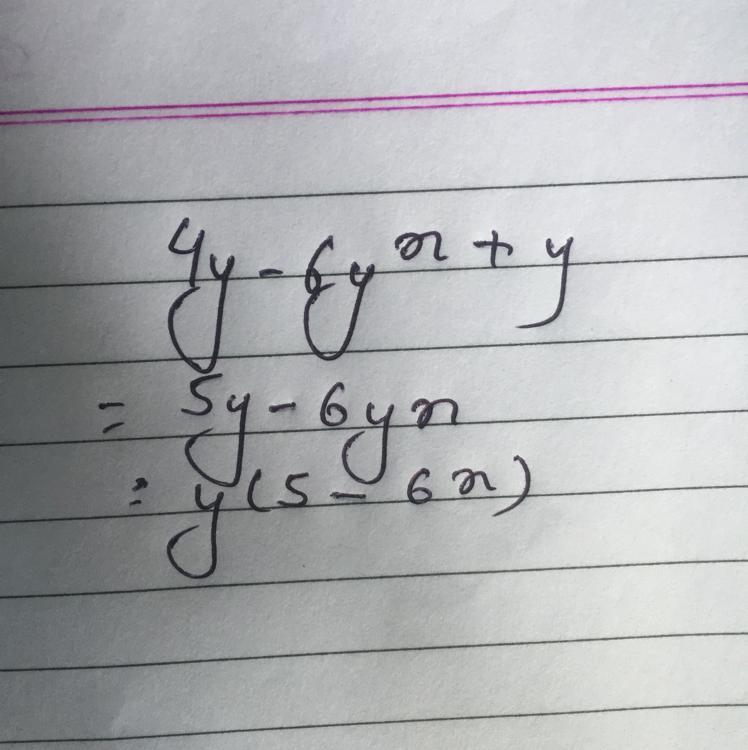 4y - 6yx + y
= 5y - 6yx
= y(5 - 6x)